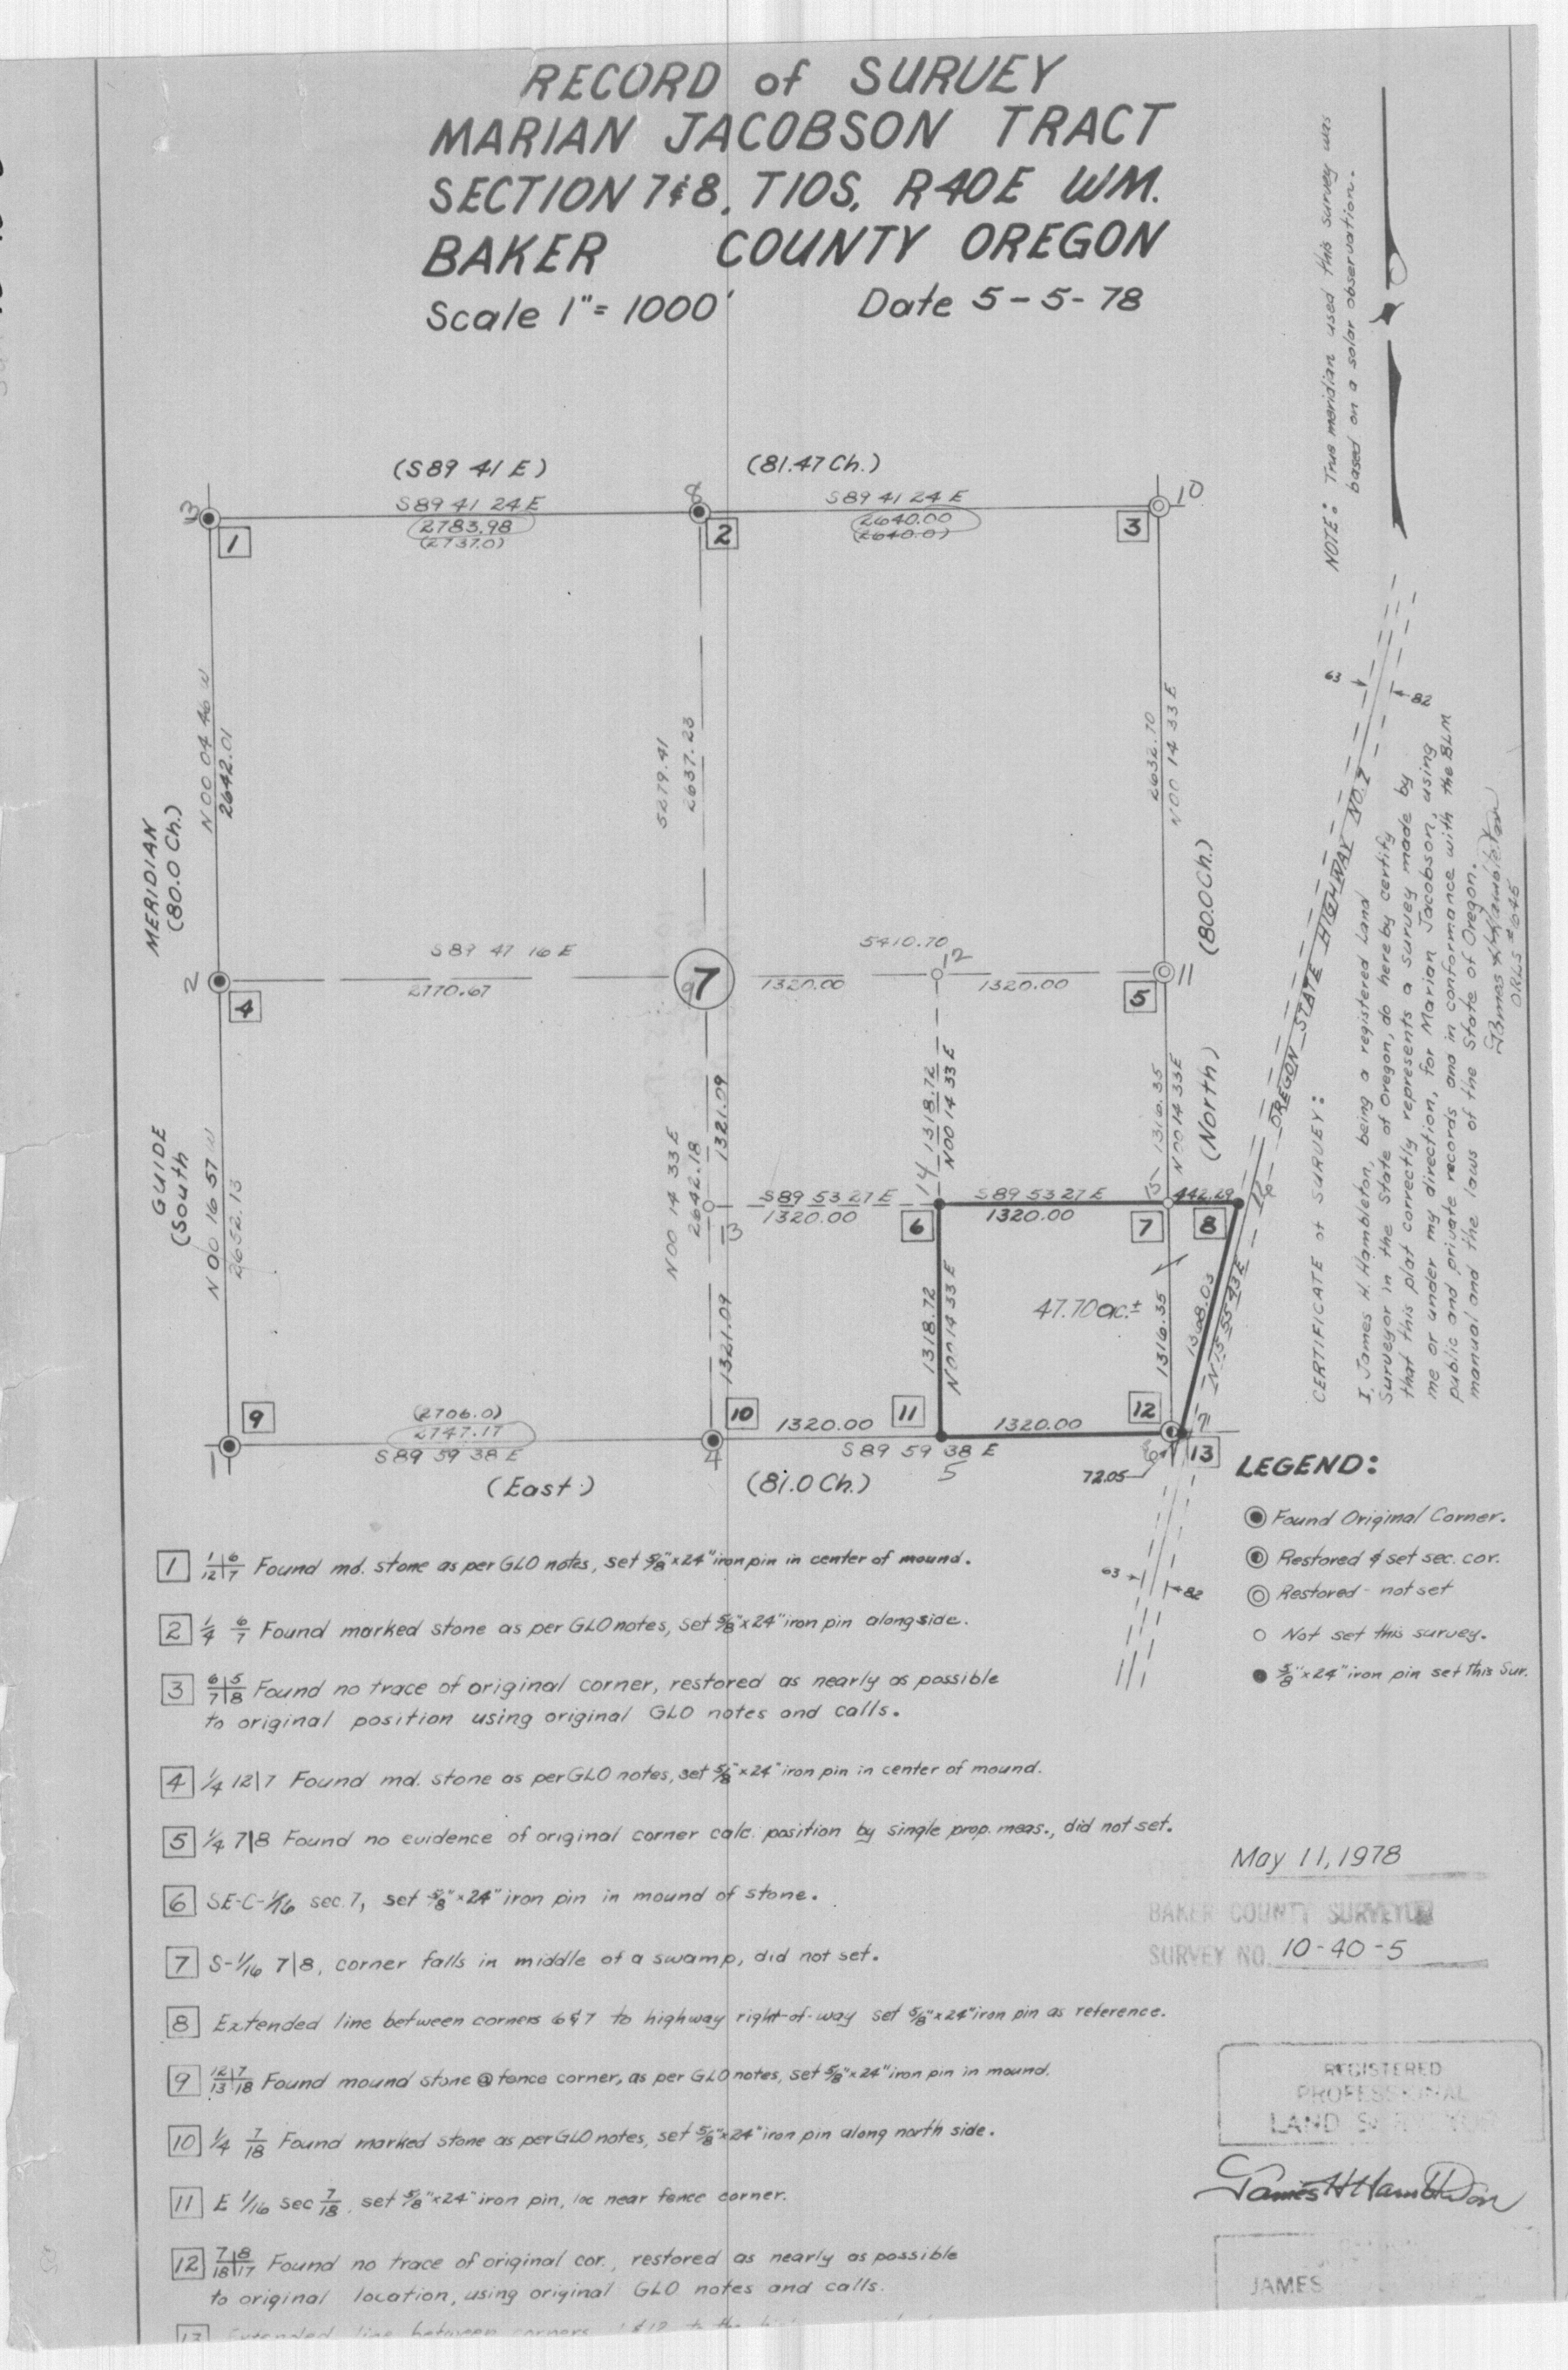 RECORD of SURVEY
MARIAN JACOBSON TRACT
SECTION 7&8, T10S, R40E WM.
BAKER COUNTY OREGON
Scale 1"= 1000' Date 5-5-78
NOTE: True meridian used this survey was
based on a solar observation.
(S89 41 E) (81.47 Ch.)
3 S89 41 24 E 8 S89 41 24 E 10
2783.98 2640.00
(2737.0) (2640.0)
1 2 3
N 00 04 46 W
2642.01
5279.41
2637.23
2632.70
N00 14 33 E
63
82
MERIDIAN
(80.0 Ch.)
(80.0 Ch.)
OREGON STATE HIGHWAY NO. 2
S89 47 16 E 5410.70
2 2770.67 9 7 1320.00 12 1320.00 11
4 5
GUIDE
(South
N 00 16 57 W
2652.13
N00 14 33 E
2642.18
1321.09
1318.72
N00 14 33 E
1316.35
N00 14 33E
(North)
14
S89 53 27 E S89 53 27 E 442.29
1320.00 1320.00
13 6 7 8
1321.09
1318.72
N00 14 33 E
47.70ac.±
1316.35
1368.03
N15 55 43 E
9 (2706.0) 10 11 12
2747.17 1320.00 1320.00
1 S89 59 38 E 4 S89 59 38 E 6 7 13
(East) (81.0 Ch.) 5 72.05
63
82
CERTIFICATE of SURVEY:
I, James H. Hambleton, being a registered Land
Surveyor in the State of Oregon, do hereby certify
that this plat correctly represents a survey made by
me or under my direction, for Marian Jacobson, using
public and private records and in conformance with the BLM
manual and the laws of the State of Oregon.
James H Hambleton
ORLS #645
LEGEND:
Found Original Corner.
Restored & set sec. cor.
Restored - not set
Not set this survey.
5/8"x24" iron pin set this Sur.
1 1|6 12|7 Found md. stone as per GLO notes, set 5/8"x24" iron pin in center of mound.
2 1/4 6/7 Found marked stone as per GLO notes, set 5/8"x24" iron pin alongside.
3 6|5 7|8 Found no trace of original corner, restored as nearly as possible
to original position using original GLO notes and calls.
4 1/4 12|7 Found md. stone as per GLO notes, set 5/8"x24" iron pin in center of mound.
5 1/4 7|8 Found no evidence of original corner calc. position by single prop. meas., did not set.
6 SE-C-1/16 sec. 7, set 5/8"x24" iron pin in mound of stone.
7 S-1/16 7|8, corner falls in middle of a swamp, did not set.
8 Extended line between corners 6&7 to highway right-of-way set 5/8"x24" iron pin as reference.
9 12|7 13|18 Found mound stone @ fence corner, as per GLO notes, set 5/8"x24" iron pin in mound.
10 1/4 7/18 Found marked stone as per GLO notes, set 5/8"x24" iron pin along north side.
11 E 1/16 sec 7/18 set 5/8"x24" iron pin, loc near fence corner.
12 7|8 18|17 Found no trace of original cor., restored as nearly as possible
to original location, using original GLO notes and calls.
13 Extended line between corners
May 11, 1978
BAKER COUNTY SURVEYOR
SURVEY NO. 10-40-5
REGISTERED
PROFESSIONAL
LAND SURVEYOR
James H Hambleton
JAMES